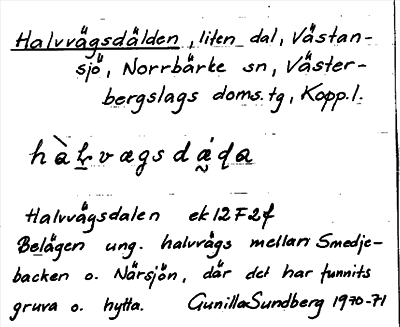 Halvvägsdälden, liten dal, Västan-
sjö, Norrbärke sn, Väster-
bergslags doms.tg, Kopp.l.
Halvvägsdalen ek 12F2f
Belägen ung. halvvägs mellan Smedje-
backen o. Närsjön, där det har funnits
gruva o. hytta. Gunilla Sundberg 1970-71